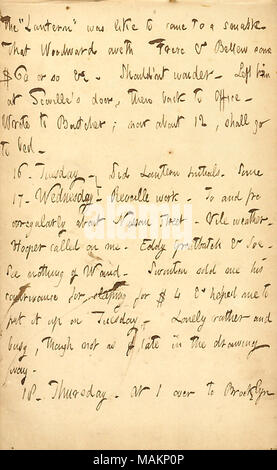 The "Lantern" was like to come to a smash.
That Woodward oweth Frere & Bellew some
$60 or so &c. Shouldn't wonder. Left him
at Seville's door, then back to Office.
Wrote to Butcher; now about 12, shall go
to bed.
16. Tuesday. Did Lantern initials. Some
17. Wednesday. Reveille work. To and fro
irregularly about Nassau Street. Vile weather.
Hooper called on me. Eddy Greatbatch & Joe.
See nothing of Waud. Swinton sold me his
contrivance for sleeping for $4 & helped me to
put it up on Tuesday. Lonely rather and
busy, though not as of late in the drawing
way.
18. Thursday. At 1 over to Brooklyn
alamy
Image ID: MAKP0P
www.alamy.com